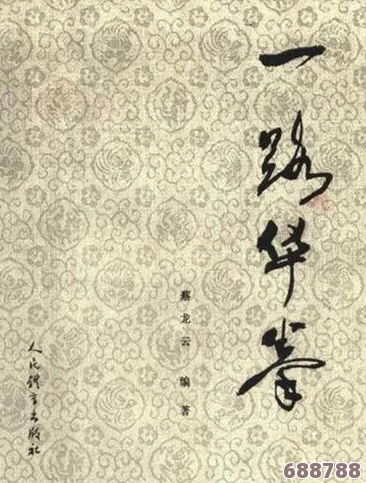 一路华拳
蔡龙云 编著
人民体育出版社
688788